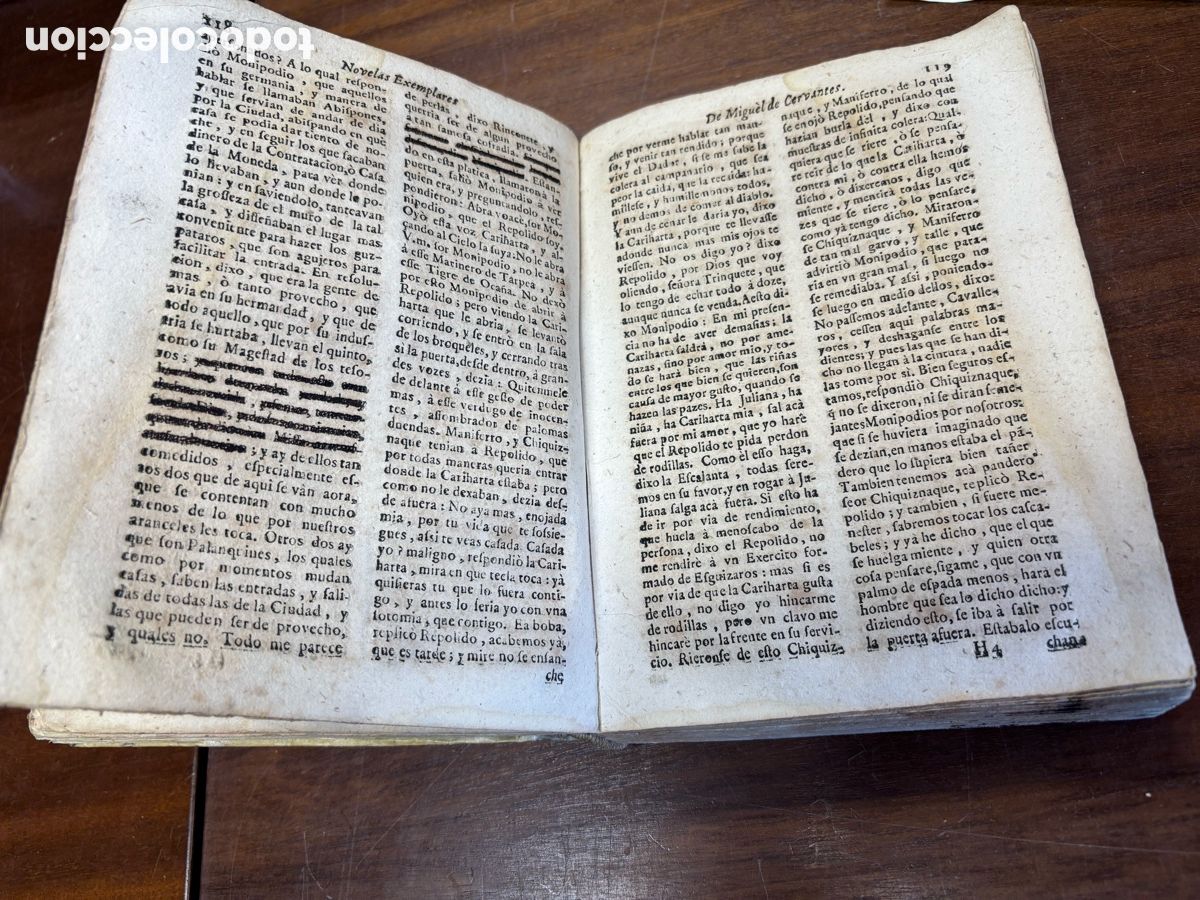 todocoleccion
118
Novelas Exemplares
dos? A lo qual respon-
diò Monipodio, que aquellos
en su germania, y manera de
hablar se llamaban Abispones,
y que servian de andar de dia
por la Ciudad, abispando en què
casa se podia dar tiento de no-
che, y en seguir los que sacaban
dinero de la Contratacion, ò Casa
de la Moneda, para vèr donde
lo llevaban, y aun donde lo po-
nian: y en saviendolo, tanteavan
la grosseza de el muro de la tal
casa, y diseñaban el lugar mas
conveniente para hazer los guz-
pataros, que son agujeros para
facilitar la entrada. En resolu-
cion, dixo, que era la gente de
mas, ò tanto provecho, que
avia en su hermandad, y que de
todo aquello, que por su indus-
tria se hurtaba, llevan el quinto,
como su Magestad de los teso-
ros;
; y ay de ellos tan
comedidos, especialmente es-
tos dos que de aqui se vàn aora,
que se contentan con mucho
menos de lo que por nuestros
aranceles les toca. Otros dos ay
que son Palanquines, los quales
como por momentos mudan
casas, saben las entradas, y sali-
das de todas las de la Ciudad, y
las que pueden ser de provecho,
y quales no. Todo me parece
de perlas, dixo Rinconete, y
querria ser de algun provecho
à tan famosa cofadia.
Estan-
do en esta platica, llamaron à la
puerta, saliò Monipodio à vèr
quien era, y preguntandolo, res-
pondieron: Abra voacè, sor Mo-
nipodio, que el Repolido soy.
Oyò esta voz Cariharta, y al-
zando al Cielo la suya: No le abra
V.m. sor Monipodio, no le abra
à esse Marinero de Tarpeya, y à
esse Tigre de Ocaña. No dexò
por esto Monipodio de abrir à
Repolido; pero viendo la Cari-
harta que le abria, se levantò
corriendo, y se entrò en la sala
de los broqueles, y cerrando tras
si la puerta, desde dentro, à gran-
des vozes, dezia: Quitenmele
de delante à esse gesto de poder
mas, à esse verdugo de inocen-
tes, assombrador de palomas
duendas. Maniferro, y Chiquiz-
naque tenian à Repolido, que
por todas maneras queria entrar
donde la Cariharta estaba; pero
como no le dexaban, dezia des-
de afuera: No aya mas, enojada
mia, por tu vida que te sosie-
gues, assi te veas casada. Casada
yo? maligno, respondiò la Cari-
harta, mira en que tecla toca: yà
quisieras tu que lo fuera conti-
go, y antes lo seria yo con vna
sotomia, que contigo. Ea boba,
replicò Repolido, acabemos yà,
que es tarde; y mire no se ensan-
che
De Miguèl de Cervantes.
119
che por verme hablar tan man-
so, y venir tan rendido; porque
vive el Dadot, si se me sabe la
colera al campanario, que sea
peor la caida, que la recaida: hu-
millese, y humillemonos todos,
y no demos de comer al diablo.
Y aun de cenar le daria yo, dixo
la Cariharta, porque te llevasse
adonde nunca mas mis ojos te
viessen. No os digo yo? dixo
Repolido, por Dios que voy
oliendo, señora Trinquete, que
lo tengo de echar todo à doze,
aunque nunca se venda. Aesto di-
xo Monipodio: En mi presen-
cia no ha de aver demasias; la
Cariharta saldrà, no por ame-
nazas, sino por amor mio, y to-
do se harà bien, que las riñas
entre los que bien se quieren, son
causa de mayor gusto, quando se
hazen las pazes. Ha Juliana, ha
niña, ha Cariharta mia, sal acà
fuera por mi amor, que yo harè
que el Repolido te pida perdon
de rodillas. Como èl esso haga,
dixo la Escalanta, todas sere-
mos en su favor, y en rogar à Ju-
liana salga acà fuera. Si esto ha
de ir por via de rendimiento,
que huela à menoscabo de la
persona, dixo el Repolido, no
me rendirè à vn Exercito for-
mado de Esguizaros: mas si es
por via de que la Cariharta gusta
de ello, no digo yo hincarme
de rodillas, pero vn clavo me
hincarè por la frente en su servi-
cio. Rieronse de esto Chiquiz-
naque, y Maniferro, de lo qual
se enojò Repolido, pensando que
hazian burla dèl, y dixo con
muestras de infinita colera: Qual-
quiera que se riere, ò se pensa-
re reir de lo que la Cariharta,
contra mi, ò contra ella hemos
dicho, ò dixeremos, digo que
miente, y mentirà todas las ve-
zes que se riere, ò lo pensare,
como yà tengo dicho. Miraron-
se Chiquiznaque, y Maniferro
de tan mal garvo, y talle, que
advirtiò Monipodio, que para-
ria en vn gran mal, si luego no
se remediaba. Y assi, poniendo-
se luego en medio dellos, dixo:
No passemos adelante, Cavalle-
ros, cessen aqui palabras ma-
yores, y deshaganse entre los
dientes; y pues las que se han di-
cho no llegan à la cintura, nadie
las tome por sì. Bien seguros es-
tamos, respondiò Chiquiznaque,
q̃ no se dixeron, ni se diran seme-
jantes Monipodios por nosotros:
que si se huviera imaginado que
se dezian, en manos estaba el pã-
dero que lo supiera bien tañer.
Tambien tenemos acà pandero,
seor Chiquiznaque, replicò Re-
polido; y tambien, si fuere me-
nester, sabremos tocar los casca-
beles; y yà he dicho, que el que
se huelga miente, y quien otra
cosa pensare, sigame, que con vn
palmo de espada menos, harà el
hombre que sea lo dicho dicho: y
diziendo esto, se iba à salir por
la puerta afuera. Estabalo escu-
H4
chana